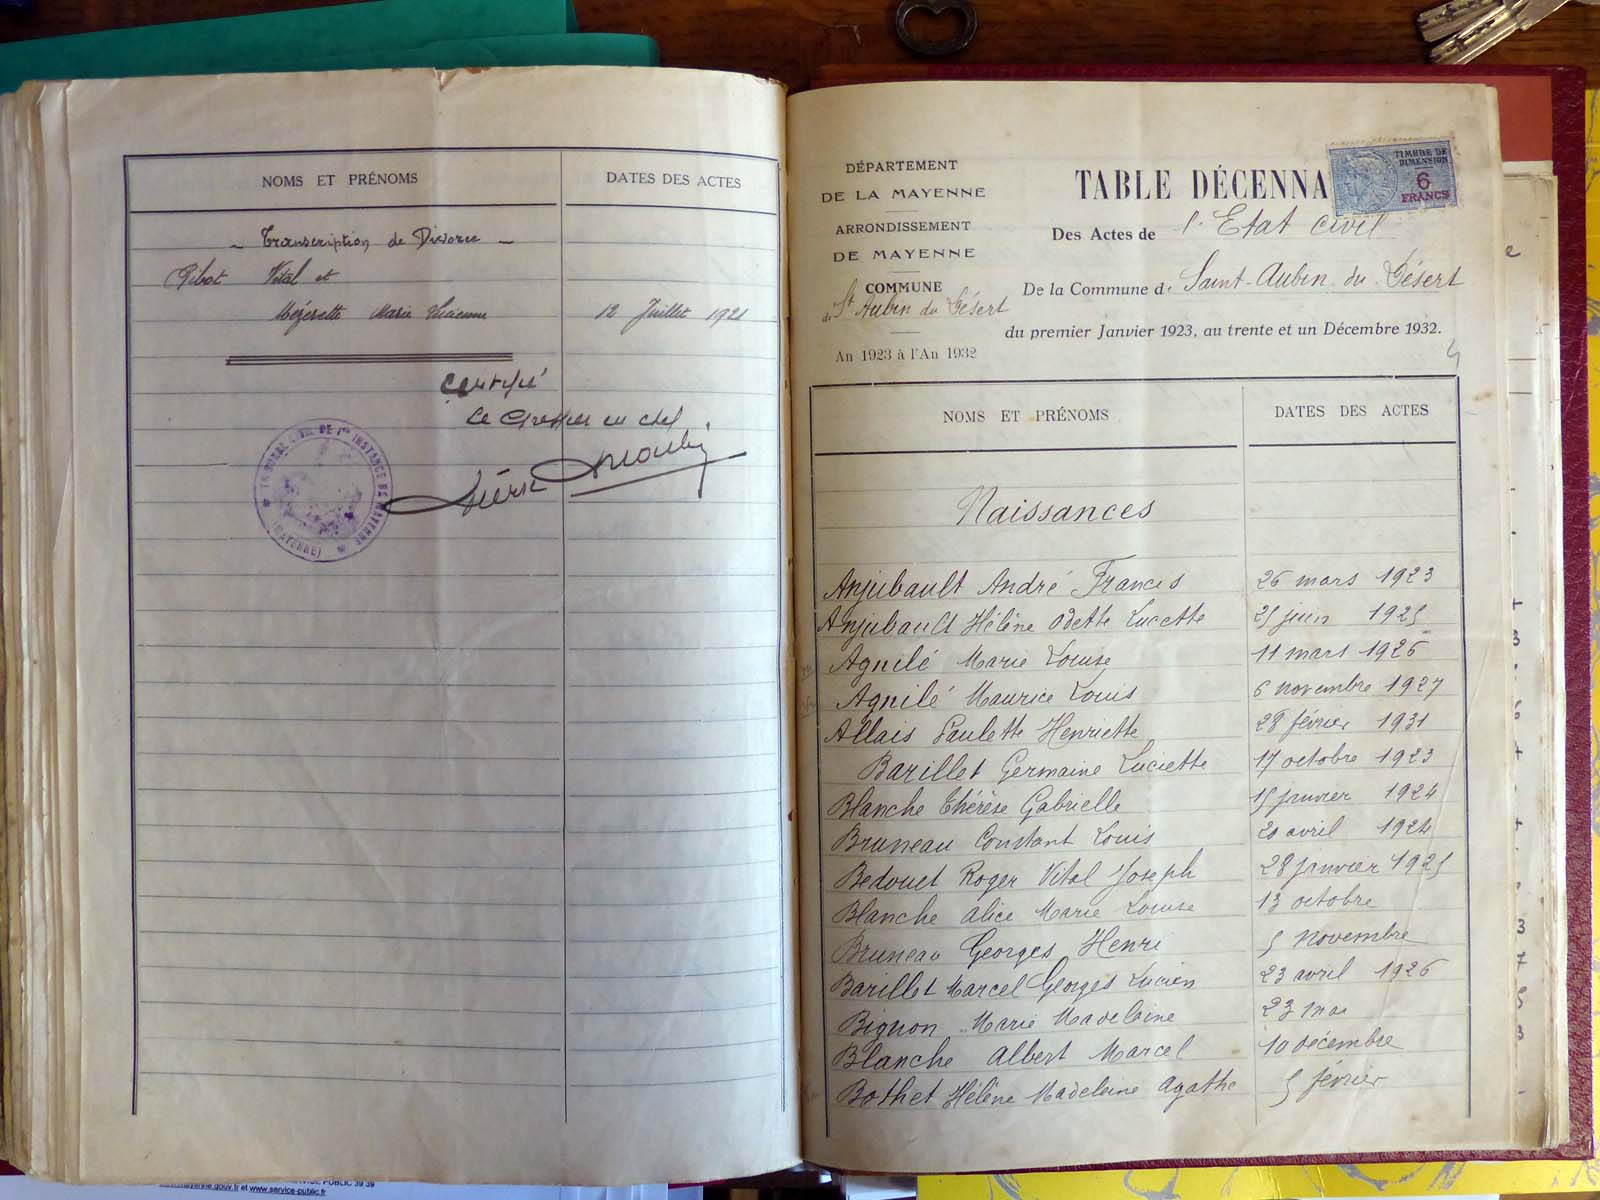 NOMS ET PRÉNOMS DATES DES ACTES
- Transcription de Divorce -
Vital et
Marie 12 Juillet 1921
Certifié
Le Greffier en chef
TRIBUNAL CIVIL DE 1re INSTANCE DE MAYENNE
(MAYENNE)
DÉPARTEMENT
DE LA MAYENNE
ARRONDISSEMENT
DE MAYENNE
COMMUNE
de St Aubin du Désert
An 1923 à l'An 1932
TABLE DÉCENNA
TIMBRE DE
DIMENSION
6
FRANCS
Des Actes de l'Etat civil
De la Commune de Saint-Aubin du Désert
du premier Janvier 1923, au trente et un Décembre 1932.
NOMS ET PRÉNOMS DATES DES ACTES
Naissances
Anjubault André Francis 26 mars 1923
Anjubault Hélène Odette Lucette 25 juin 1925
Agnilé Marie Louise 11 mars 1926
Agnilé Maurice Louis 6 novembre 1927
Allais Paulette Henriette 28 février 1931
Barillet Germaine Luciette 17 octobre 1923
Blanche Thérèse Gabrielle 15 janvier 1924
Bruneau Constant Louis 20 avril 1924
Bedouet Roger Vital Joseph 28 janvier 1925
Blanche Alice Marie Louise 13 octobre
Bruneau Georges Henri 5 novembre
Barillet Marcel Georges Lucien 23 avril 1926
Bignon Marie Madeleine 23 mai
Blanche Albert Marcel 10 décembre
Bothet Hélène Madeleine Agathe 5 février
SERVICE PUBLIC 39 39
mayenne.gouv.fr et www.service-public.fr